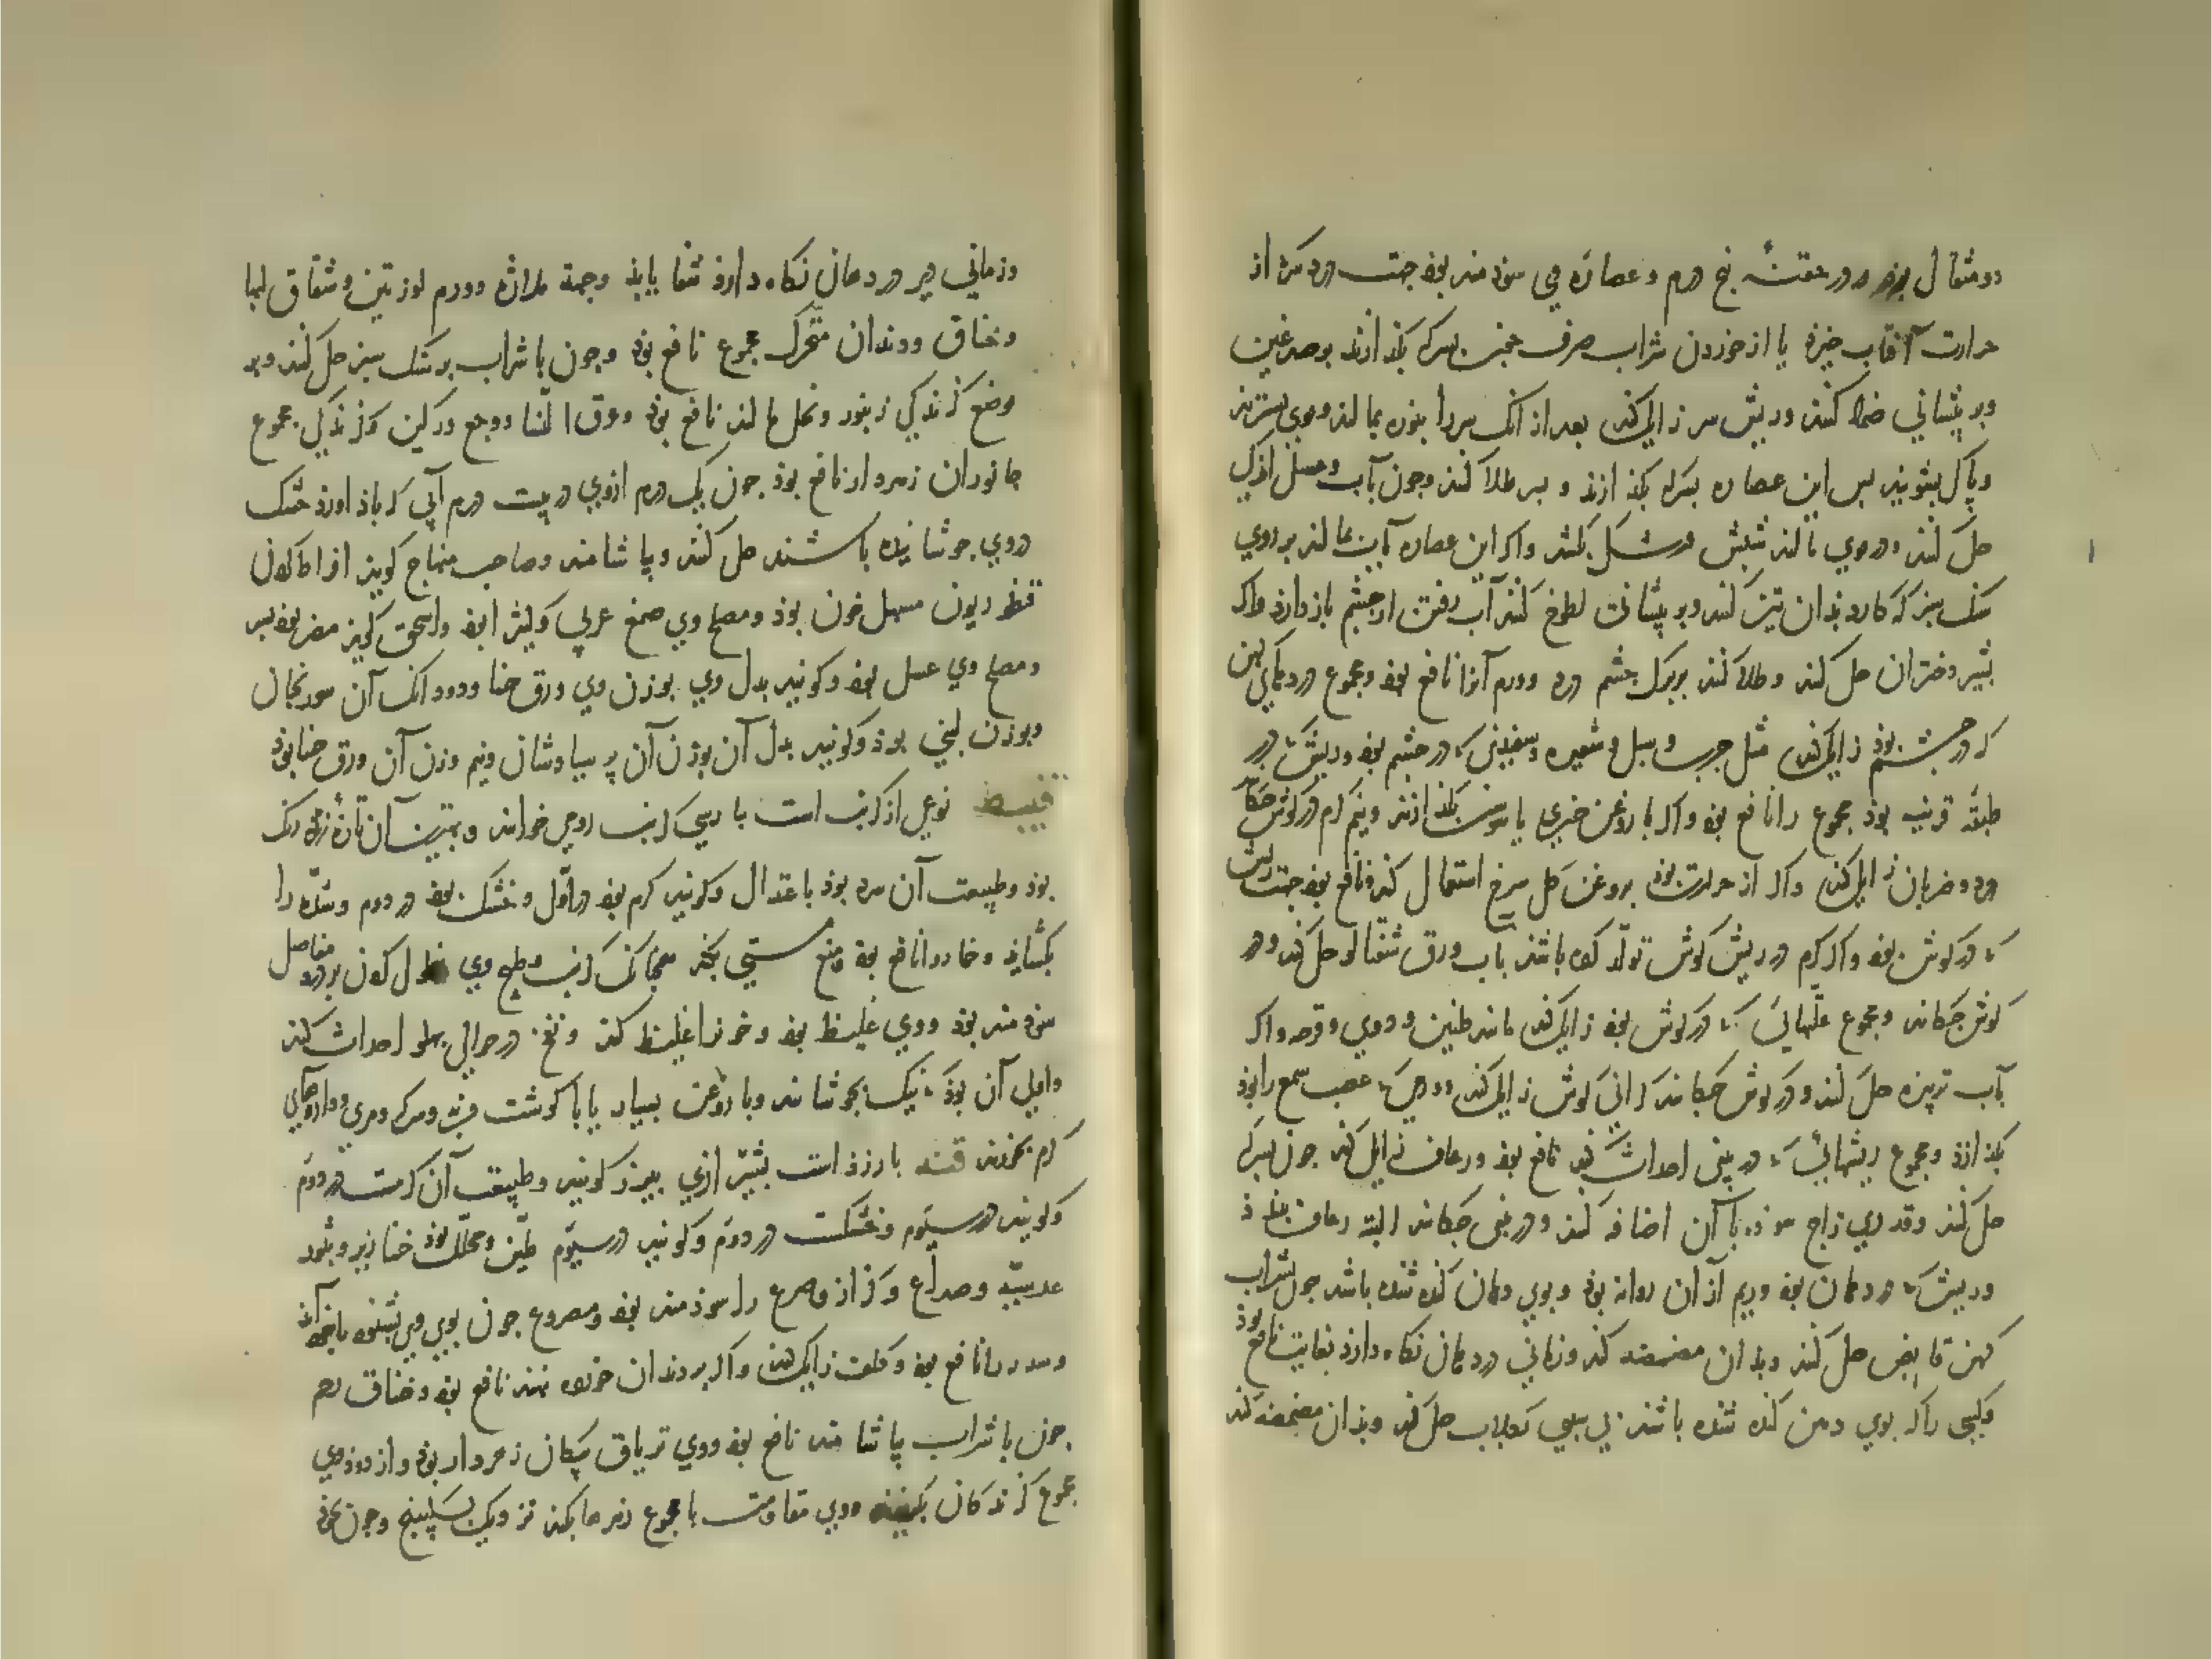 دو مثقال بوزن در عقب نخ درم و عصاره وی سوذمند بوذ جهت درد سر از
حرارت آفتاب خیزد یا از خوردن شراب صرف بسرکه بکذازند بر صدغین
و بر پیشانی ضماد کنند و ریش سر زایل کند بعد از آنک سر را بنوره بمالند و موی بسترند
و پاک بشویند پس این عصاره بسرکه بکذازند و بسر طلا کنند و جون بآب و عسل اندکی
حل کنند و در موی مالند شپش و رشک بکشد و اکر این عصاره بآب بمالند بر روی
سنک سبز که کارد بذان تیز کنند و بر پیشانی لطوخ کنند آب رفتن از جشم باز دارد و اکر
بشیر دختران حل کنند و طلا کنند بر پلک جشم درد و ورم آنرا نافع بوذ و مجموع دردهای کهن
که در جشم بوذ زایل کند مثل جرب و سبل و شعیره و سفیدی که در جشم بوذ و ریش که در
طبقه قرنیه بوذ مجموع را نافع بوذ و اکر با روغن خیری یا سوسن بکذازند و نیم کرم در کوش جکانند
درد و ضربان زایل کند و اکر از حرارت بوذ بروغن کل سرخ استعمال کنند و نافع بوذ جهت ریش
که در کوش بوذ و اکر کرم در ریش کوش تولد کرده باشد بآب ورق شفتالو حل کنند و در
کوش جکانند و مجموع علتهائی که در کوش بوذ زایل کند مانند طنین و دوی و قرحه و اکر
بآب تربزه حل کنند و در کوش جکانند کرانی کوش زایل کند و وجعی که عصب سمع را بوذ
بکذازد و مجموع ریشهائی که در بینی احداث کند نافع بوذ و رعاف زایل کند جون بسرکه
حل کنند و قدری زاج سوذه با آن اضافه کنند و در بینی جکانند البته رعاف ببندد
و ریش که در دهان بوذ و ریم از آن روانه بوذ و بوی دهان کنده شده باشد جون بشراب
کهن قابض حل کنند و بذان مضمضه کنند و زمانی در دهان نکاه دارد بغایت نافع بوذ
و کسی را که بوی دهن کنده شده باشد بی سببی بکلاب حل کنند و بذان مضمضه کند
و زمانی دیر در دهان نکاه دارد شفا یابد و جهة ملازه و ورم لوزتین و شقاق لبها
و خناق و دندان متحرک مجموع نافع بوذ و جون با شراب بر سنک سبز حل کنند و بر
موضع کزندکی زنبور و نحل مالند نافع بوذ و عرق النسا و وجع ورکین و کزندکی مجموع
جانوران زهردار نافع بوذ جون یک درم از وی در بیست درم آبی که باذاورد خشک
در وی جوشانیده باشند حل کنند و بیاشامند و صاحب منهاج کوید افراط کردن
قنطوریون مسهل خون بوذ و مصلح وی صمغ عربی و کثیرا بوذ و اسحق کوید مضر بوذ بسر
و مصلح وی عسل بوذ و کویند بدل وی بوزن وی ورق حنا و دو دانک آن سورنجان
و بوزن بوذ و کویند بدل آن بوزن آن پرسیاوشان و نیم وزن آن ورق حنا بوذ
قنبیط نوعی از کرنب است بارسی کرنب رومی خوانند و بهترین آن تازه زرد رنک
بوذ و طبیعت آن سرد بوذ باعتدال و کویند کرم بوذ در اول و خشک بوذ در دوم و سده را
بکشاید و خمار را نافع بوذ و منع مستی بکند همجنانک کرنب و طبخ وی نطول کردن بر درد مفاصل
سوذمند بوذ و وی غلیظ بوذ و خون را غلیظ کند و نفخ در حوالی بهلو احداث کند
و اولی آن بوذ که نیک بجوشانند و با روغن بسیار یا با کوشت فربه و سرکه و مری و داروهای
کرم بخورند قنه بارزد است بشیرازی بیرزد کویند و طبیعت آن کرمست در دوم
و کویند در سیوم و خشکست در دوم و کویند در سیوم ملین و محلل بوذ خنازیر و بثور
عدسیه و صداع و کزاز و صرع را سوذمند بوذ و مصروع جون بوی وی بشنوه باخوذ آید
و سدر را نافع بوذ و کلف زایل کند و اکر بر دندان خورده نهند نافع بوذ و خناق رحم
جون با شراب بیاشامند نافع بوذ و وی تریاق پیکان زهردار بوذ و از دوذ وی
مجموع کزندکان بکریزند و وی مقاومت با مجموع زهرها بکند نزدیک بسکبینج و جون بخوذ